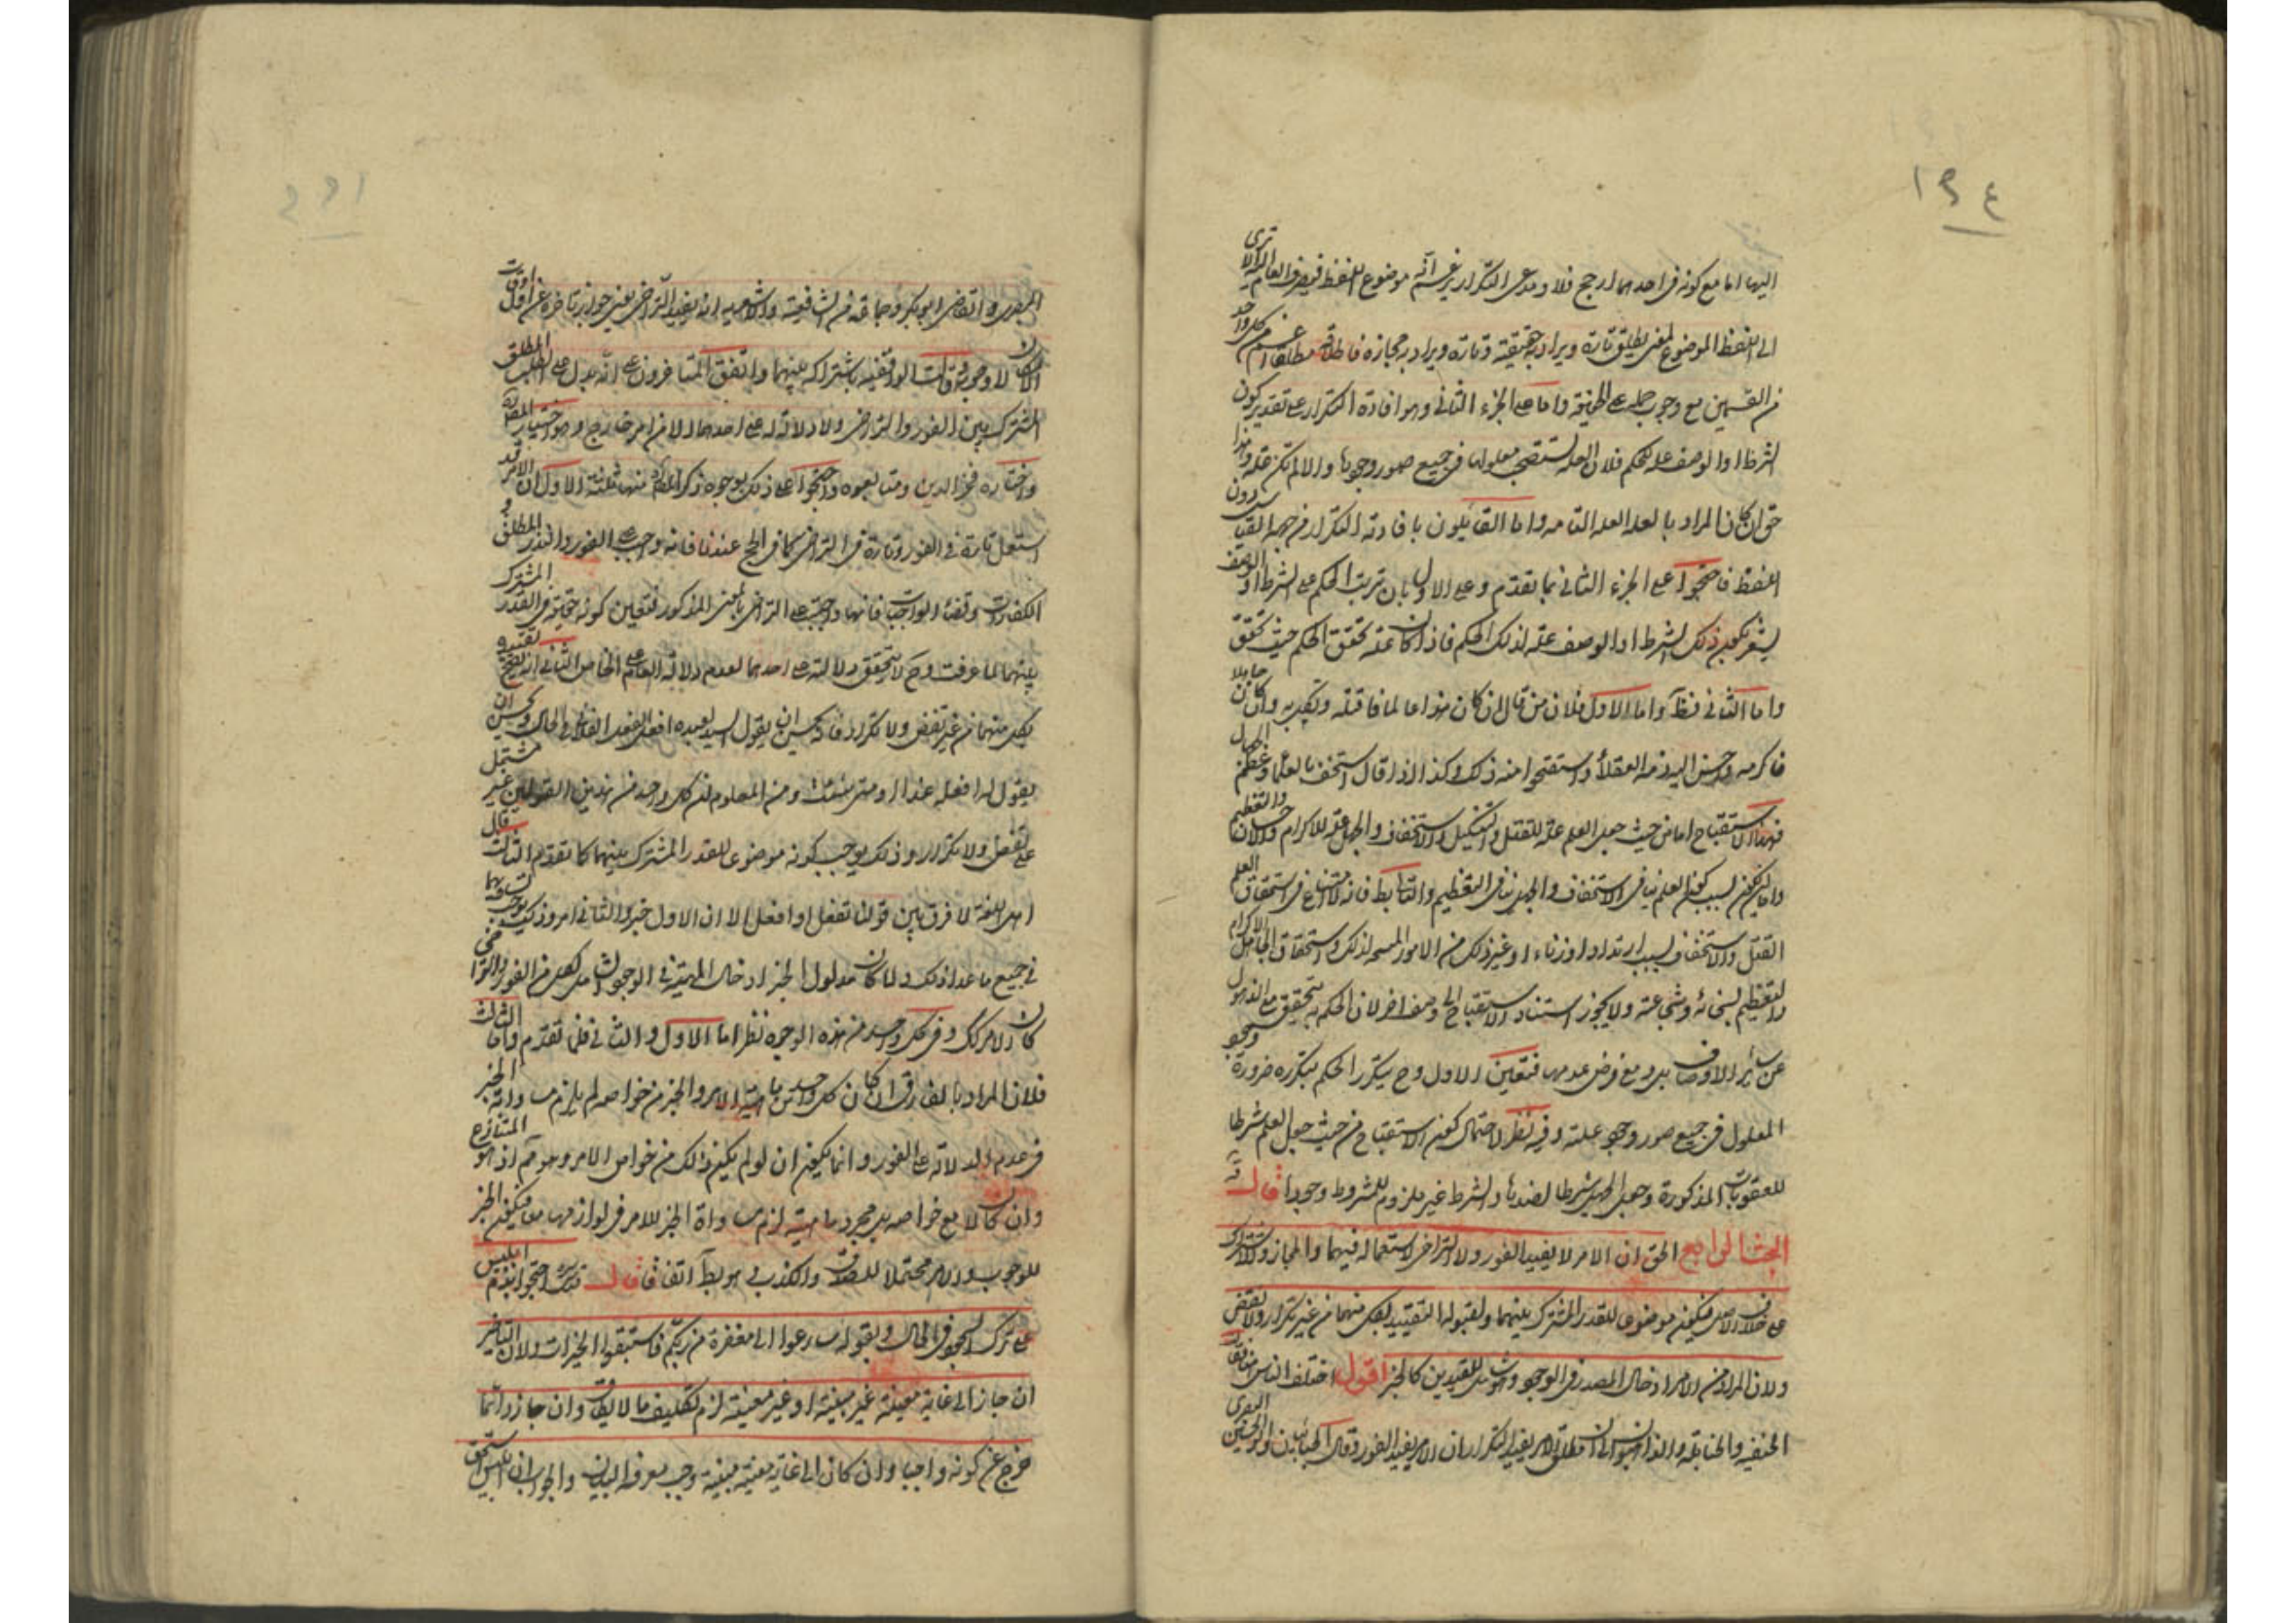 ١٩٤
اليها اما مع كونه في احدهما ارجح فلا ومدعى التكرار يزعم انه موضوع للفظ الا ترى
ان اللفظ الموضوع لمعنى يطلق تارة ويراد به حقيقة وتارة ويراد به مجازه فاطلاقه مطلقا اعم من كل واحد
من القسمين مع وجوب حمله على الحقيقة واما على الجزء الثاني وهو افادة التكرار على تقدير كون
الشرط او الوصف علة للحكم فلان العلة تستصحب معلولها في جميع صور وجودها والا لم تكن علة وهذا
حق ان كان المراد بالعلة العلة التامة واما القائلون بافادته التكرار من جهة القياس دون
اللفظ فاحتجوا على الجزء الثاني بما تقدم وعلى الاول بان ترتب الحكم على الشرط او الوصف
يشعر بكون ذلك الشرط او الوصف علة لذلك الحكم فاذا كان علة تحقق الحكم حيث تحقق
واما الثاني فظ واما الاول فلان من قال ان كان هذا عالما فاقتله ونكل به وان كان جاهلا
فاكرمه واحسن اليه ذمه العقلاء واستقبحوا منه ذلك وكذا اذا قال استخف بالعلماء وعظم الجهال
فهذا الاستقباح اما من حيث جعل العلم علة للقتل والتنكيل والاستخفاف والجهل علة للاكرام والاحسان والتعظيم
واما لكن بسبب كون العلم ينافي الاستخفاف والجهل ينافي التعظيم والثاني بط فانه لا امتناع في استحقاق العلم
القتل والاستخفاف بسبب ارتداد او زناء او غير ذلك من الامور المبيحة لذلك واستحقاق الجاهل الاكرام
والتعظيم لسخائه وشجاعته ولا يجوز استناد الاستقباح الى وصف اخر لان الحكم به يتحقق مع الذهول
عن سائر الاوصاف بل ومع فرض عدمها فتعين الاول وح يتكرر الحكم بتكرره ضرورة وجود
المعلول في جميع صور وجود علته وفيه نظر لاحتمال كون الاستقباح من حيث جعل العلم شرطا
للعقوبات المذكورة وجعل الجهل شرطا لضدها والشرط غير ملزوم للمشروط وجودا قال قه
البحث الرابع الحق ان الامر لا يفيد الفور ولا التراخي لاستعماله فيهما والمجاز والاشتراك
على خلاف الاصل فيكون موضوعا للقدر المشترك بينهما ولقبوله التقييد بكل منهما من غير تكرار ولا نقض
ولان المراد من الامر ادخال المصدر في الوجود وهو شامل للقيدين كالخبر اقول اختلف الناس هنا فقالت
الحنفيه والحنابلة والذاهبون الى ان مطلق الامر يفيد التكرار ان الامر يفيد الفور وقال الجبائيان وابو الحسين البصرى
البصرى والقاضى ابو بكر وجماعة من الشافعية والاشعرية انه يفيد التراخي يعنى جواز تاخره عن اول اوقات
الامكان لا وجوبه وقالت الواقفية باشتراكه بينهما واتفق المتاخرون على انه يدل على الطلب المطلق
المشترك بين الفور والتراخي ولا دلالة له على احدهما الا من امر خارج وهو اختيار المص
واختاره فخر الدين ومتابعوه واحتجوا على ذلك بوجوه ذكر المص منها ثلثة الاول ان الامر قد
استعمل تارة في الفور وتارة في التراخي كما في الحج عندنا فانه واجب على الفور والنذر المطلق و
الكفارات وقضاء الواجبات فانها واجبة على التراخي بالمعنى المذكور فتعين كونه حقيقة في القدر المشترك
بينهما لما عرفت وح لا يتحقق دلالته على احدهما لعدم دلالة العام على الخاص الثاني انه يصح تقييده
بكل منهما من غير نقض ولا تكرار فانه يحسن ان يقول السيد لعبده افعل الفعل الفلاني في الحال ويحسن ان
يقول له افعله غدا او متى شئت ومن المعلوم ان كل واحد من هذين القولين غير مشتمل
على نقض ولا تكرار وذلك يوجب كونه موضوعا للقدر المشترك بينهما كما تقدم الثالث قال
اهل اللغة لا فرق بين قولنا تفعل او افعل الا ان الاول خبر والثاني امر وذلك يوجب تساويهما
في جميع ما عدا ذلك ولما كان مدلول الخبر ادخال الماهية في الوجود الشامل لكل من الفور والتراخي
كان الامر كك وفي كل واحد من هذه الوجوه نظر اما الاول والثاني فلما تقدم واما الثالث
فلان المراد بالفارق ان كان كل واحد من ماهية الامر والخبر من خواصه لم يلزم مساواته الخبر
في عدم الدلالة على الفور وانما يكون ان لو لم يكن ذلك من خواص الامر وهو مم اذ هو المتنازع
وان كان لا مع خواصه بل مجرد ماهية لزم مساواة الخبر للامر في لوازمها معا فيكون الخبر
للوجوب والامر محتملا للصدق والكذب هو بط اتفاقا قال قدس سره احتجوا بذم ابليس
على ترك السجود في الحال وبقوله سارعوا الى مغفرة من ربكم فاستبقوا الخيرات ولان التاخير
ان جاز الى غاية معينة غير مبينة او غير معينة لزم تكليف ما لا يطاق وان جاز دائما
خرج عن كونه واجبا وان كان الى غاية معينة مبينة وجب معرفة البيان والجواب ان ابليس استحق